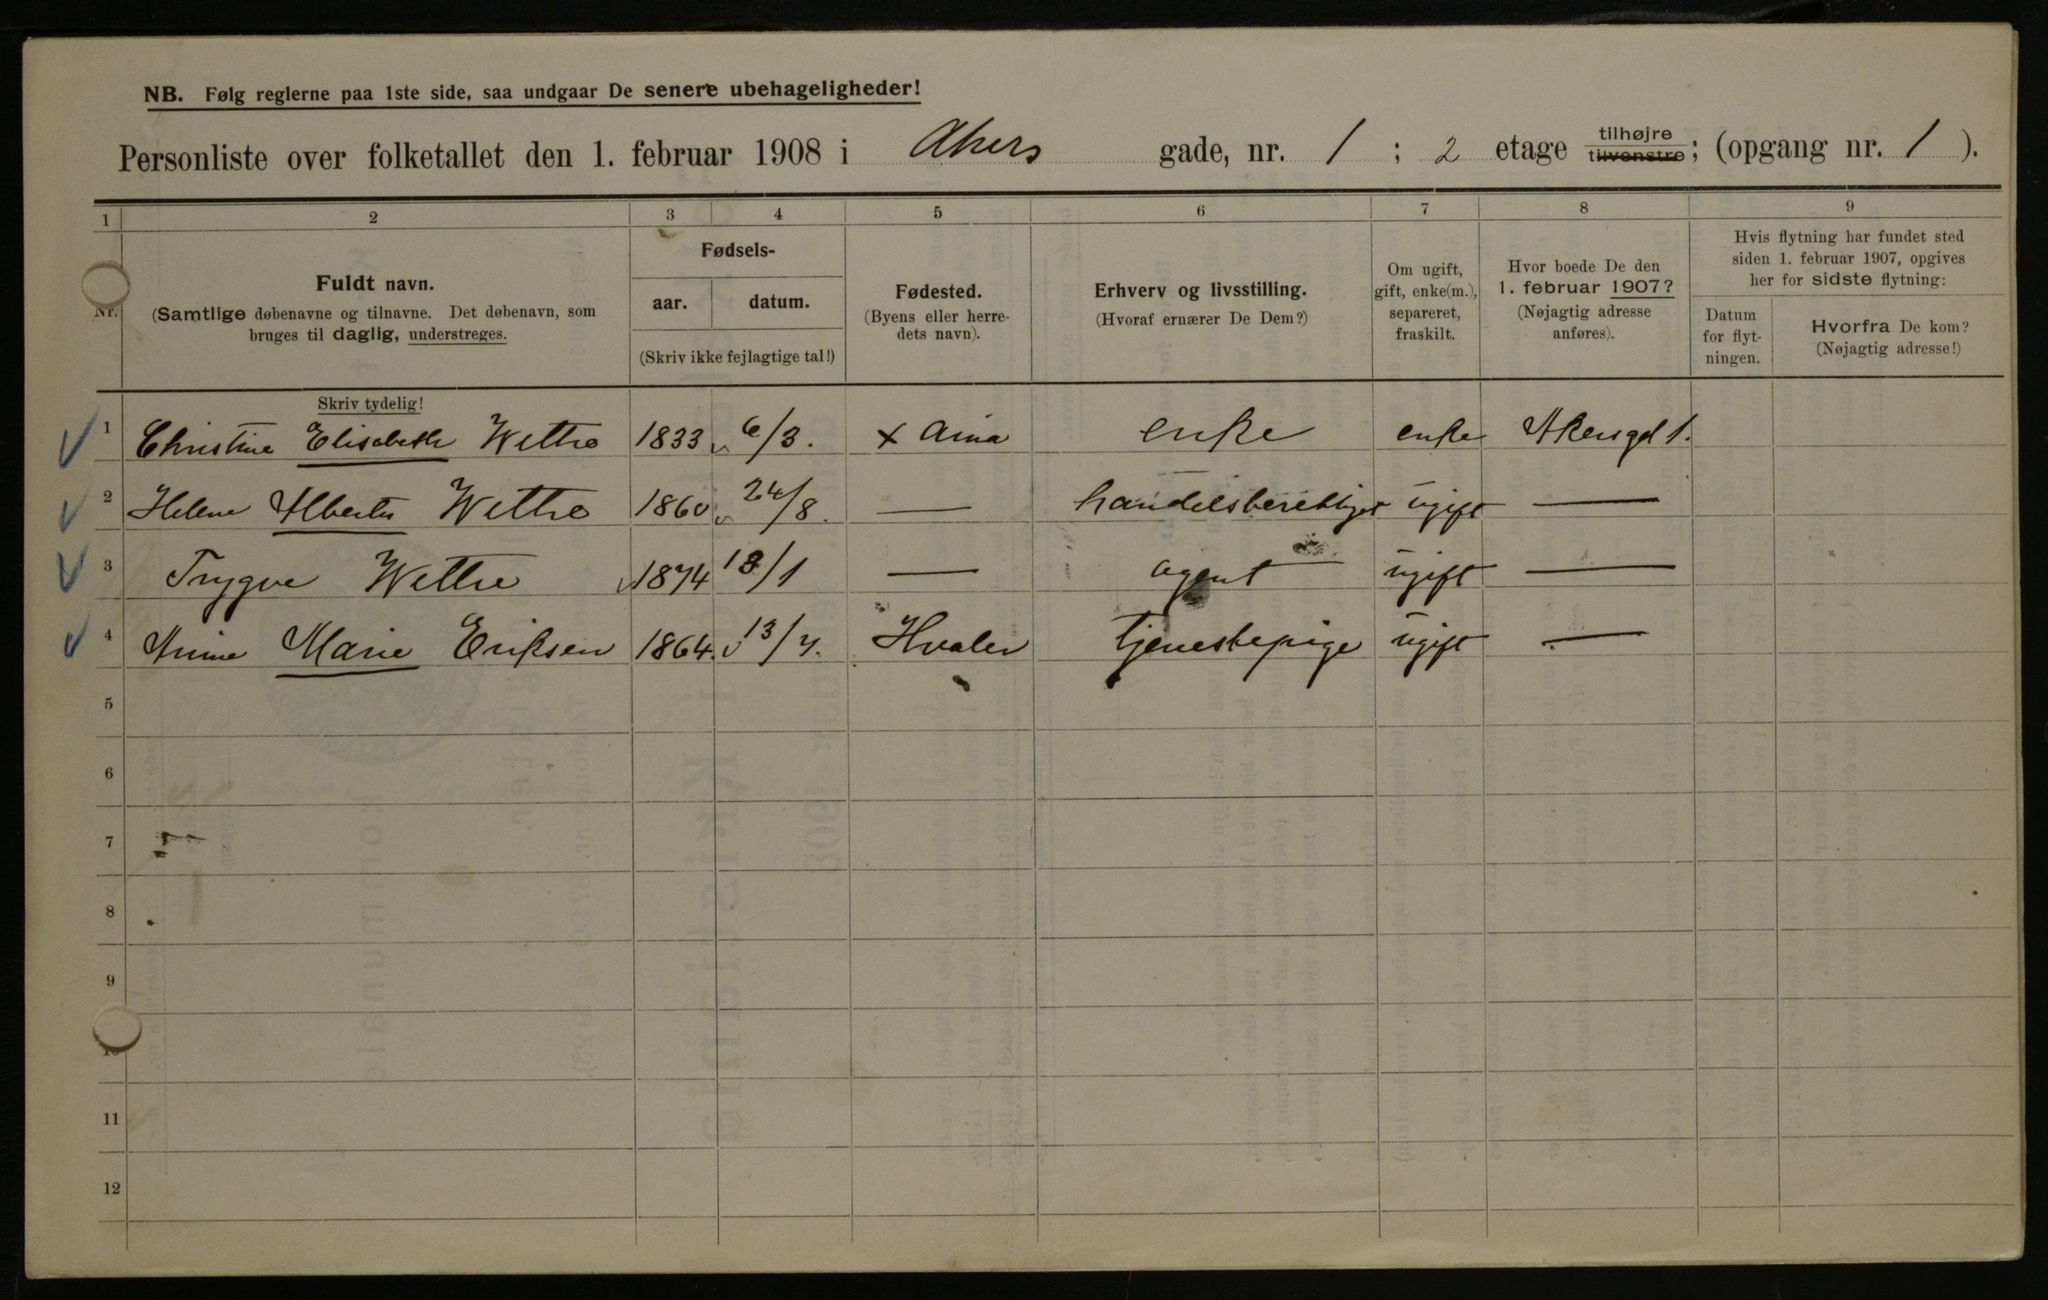 NB. Følg reglerne paa 1ste side, saa undgaar De senere ubehageligheder!
Personliste over folketallet den 1. februar 1908 i Akers gade, nr. 1 ; 2 etage tilhøjre tilvenstre; (opgang nr. 1 ).
1 2 3 4 5 6 7 8 9
Nr.
Fuldt navn.
(Samtlige døbenavne og tilnavne. Det døbenavn, som
bruges til daglig, understreges.
Skriv tydelig!
Fødsels-
aar. datum.
(Skriv ikke fejlagtige tal!)
Fødested.
(Byens eller herre-
dets navn).
Erhverv og livsstilling.
(Hvoraf ernærer De Dem?)
Om ugift,
gift, enke(m.),
separeret,
fraskilt.
Hvor boede De den
1. februar 1907?
(Nøjagtig adresse
anføres).
Hvis flytning har fundet sted
siden 1. februar 1907, opgives
her for sidste flytning:
Datum
for flyt-
ningen.
Hvorfra De kom?
(Nøjagtig adresse!)
1 Christine Elisabeth Wettre 1833 6/3. x enke enke Akersgd 1.
2 Helene Wettre 1860 24/8. — handelsberettiget ugift —
3 Trygve Wettre 1874 13/1 — agent ugift —
4 Anne Marie Eriksen 1864. 13/7. Hvaler tjenestepige ugift —
5
6
7
8
9
10
11
12